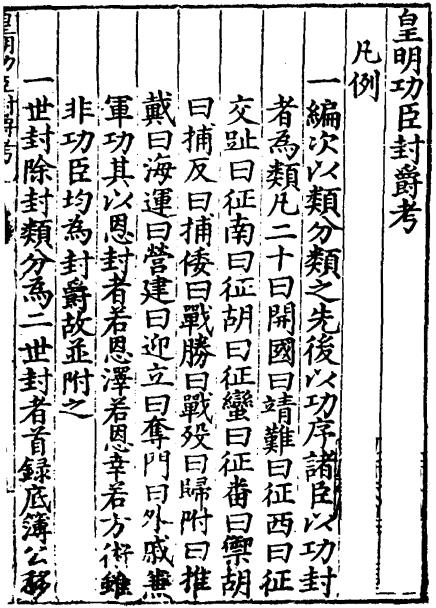 皇明功臣封爵考
凡例
一編次以類分類之先後以功序諸臣以功封
者為類凡二十曰開國曰靖難曰征西曰征
交趾曰征南曰征胡曰征蠻曰征畨曰禦胡
曰捕反曰捕倭曰戰勝曰戰歿曰歸附曰推
戴曰海運曰營建曰迎立曰奪門曰外戚兼
軍功其以恩封者若恩澤若恩幸若方術雖
非功臣均為封爵故並附之
一世封除封類分為二世封者首録底簿公移
皇明功臣封爵考